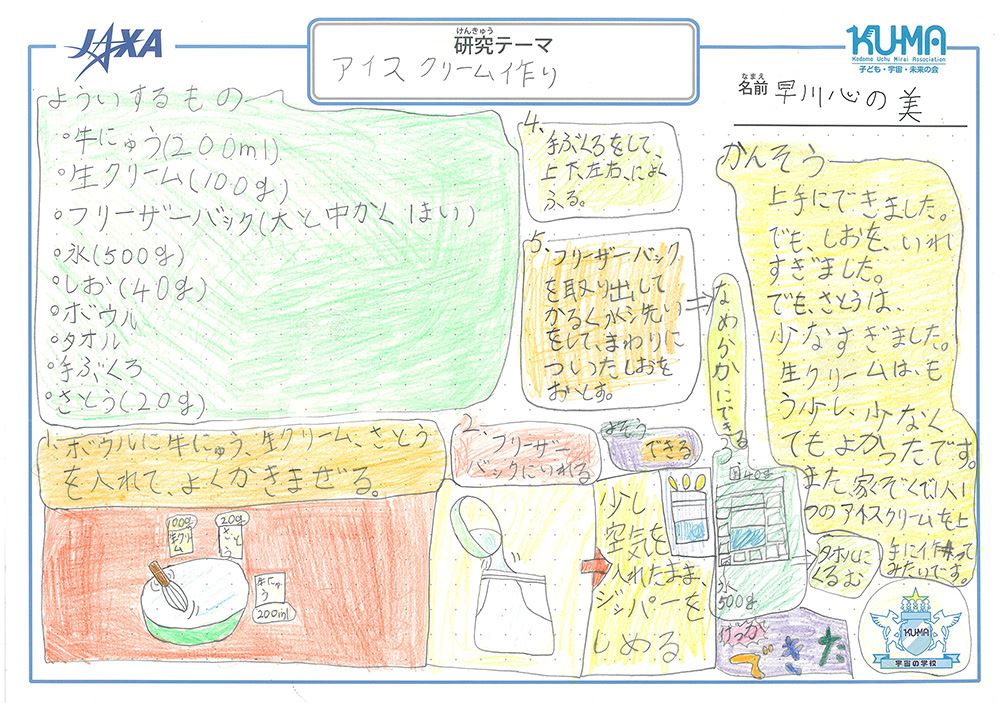 JAXA
けんきゅう
研究テーマ
アイスクリーム作り
KU-MA
Kodomo Uchu Mirai Association
子ども・宇宙・未来の会
なまえ
名前 早川心の美
よういするもの
°牛にゅう(200ml)
°生クリーム(100g)
°フリーザーバック(大と中かくはい)
°氷(500g)
°しお(40g)
°ボウル
°タオル
°手ぶくろ
°さとう(20g)
1、ボウルに牛にゅう、生クリーム、さとう
を入れて、よくかきまぜる。
100g
生クリーム
20g
さとう
牛にゅう
200ml
2、フリーザー
バックにいれる
少し
空気を
入れたまま、
ジッパーを
しめる
よそう
できる
なめらかにできる
40g
氷
500g
タオルに
くるむ
4、
手ぶくろをして、
上下、左右、によく
ふる。
5、フリーザーバック
を取り出して
かるく水洗い
をして、まわりに
ついったしおを
おとす。
けっか
できた
かんそう
上手にできました。
でも、しおを、いれ
すぎました。
でも、さとうは、
少なすぎました。
生クリームは、も
う少し、少なく
てもよかったです。
また、家ぞくで1人1
つのアイスクリームを上
手に作って
みたいです。
KU-MA
宇宙の学校